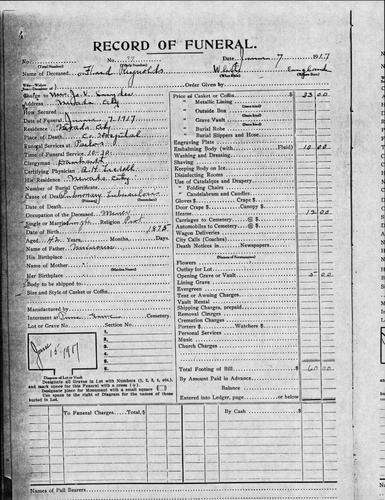 RECORD OF FUNERAL.
No. No. Date June 7 1917
(Total Number) (Yearly Number)
Name of Deceased Reynolds White England
(What Race) (Where Born)
Order Given by
Charge to Mrs.
Address Nevada City
How Secured
Date of Funeral 7, 1917
Residence Nevada City
Place of Death Co. Hospital
Funeral Services at Parlors
Time of Funeral Service 10:30
Clergyman
Certifying Physician
His Residence Nevada City
Number of Burial Certificate
Cause of Death Pulmonary Tuberculosis
Date of Death
Occupation of the Deceased Miner
Single or Married Single Religion Prot
Date of Birth 1875
Aged 42 Years, Months, Days.
Name of Father Unknown
His Birthplace
Name of Mother
(Maiden Name)
Her Birthplace
Body to be shipped to
Size and Style of Casket or Coffin
Manufactured by
Interment at Pine Grove Cemetery
Lot or Grave No. Section No.
1.
2.
3.
4.
5.
6.
June 15 1917
Diagram of Lot or Vault
Designate all Graves in Lot with Numbers (1, 2, 3, 4, etc.) and mark space for this Funeral with a cross (+)
Designate place for Monument with a small square □
Use space to the right of Diagram for the names of those buried in Lot.
Price of Casket or Coffin $ 33 00
" Metallic Lining
" Outside Box
" Grave Vault
" Burial Robe
" Burial Slippers and Hose
Engraving Plate
Embalming Body (with Fluid) 10 00
Washing and Dressing
Shaving
Keeping Body on Ice
Disinfecting Rooms
Use of Catafalque and Drapery
" Folding Chairs
" Candelabrum and Candles
Gloves $ Crape $
Door Crape $ Canopy $
Hearse 12 00
Carriages to Cemetery @ $
Automobiles to Cemetery @ $
Wagon Deliveries
City Calls (Coaches)
Death Notices in Newspapers
(Names of Newspapers)
Flowers
Outlay for Lot
Opening Grave or Vault 5 00
Lining Grave
Evergreen
Tent or Awning Charges
Vault Rental
Shipping Charges, prepaid
Removal Charges
Cremation Charges
Porters $ Watchers $
Personal Services
Music
Church Charges
Total Footing of Bill $ 60 00
By Amount Paid in Advance
Balance
Entered into Ledger, page or below
To Funeral Charges, Total, $ By Cash $
Names of Pall Bearers